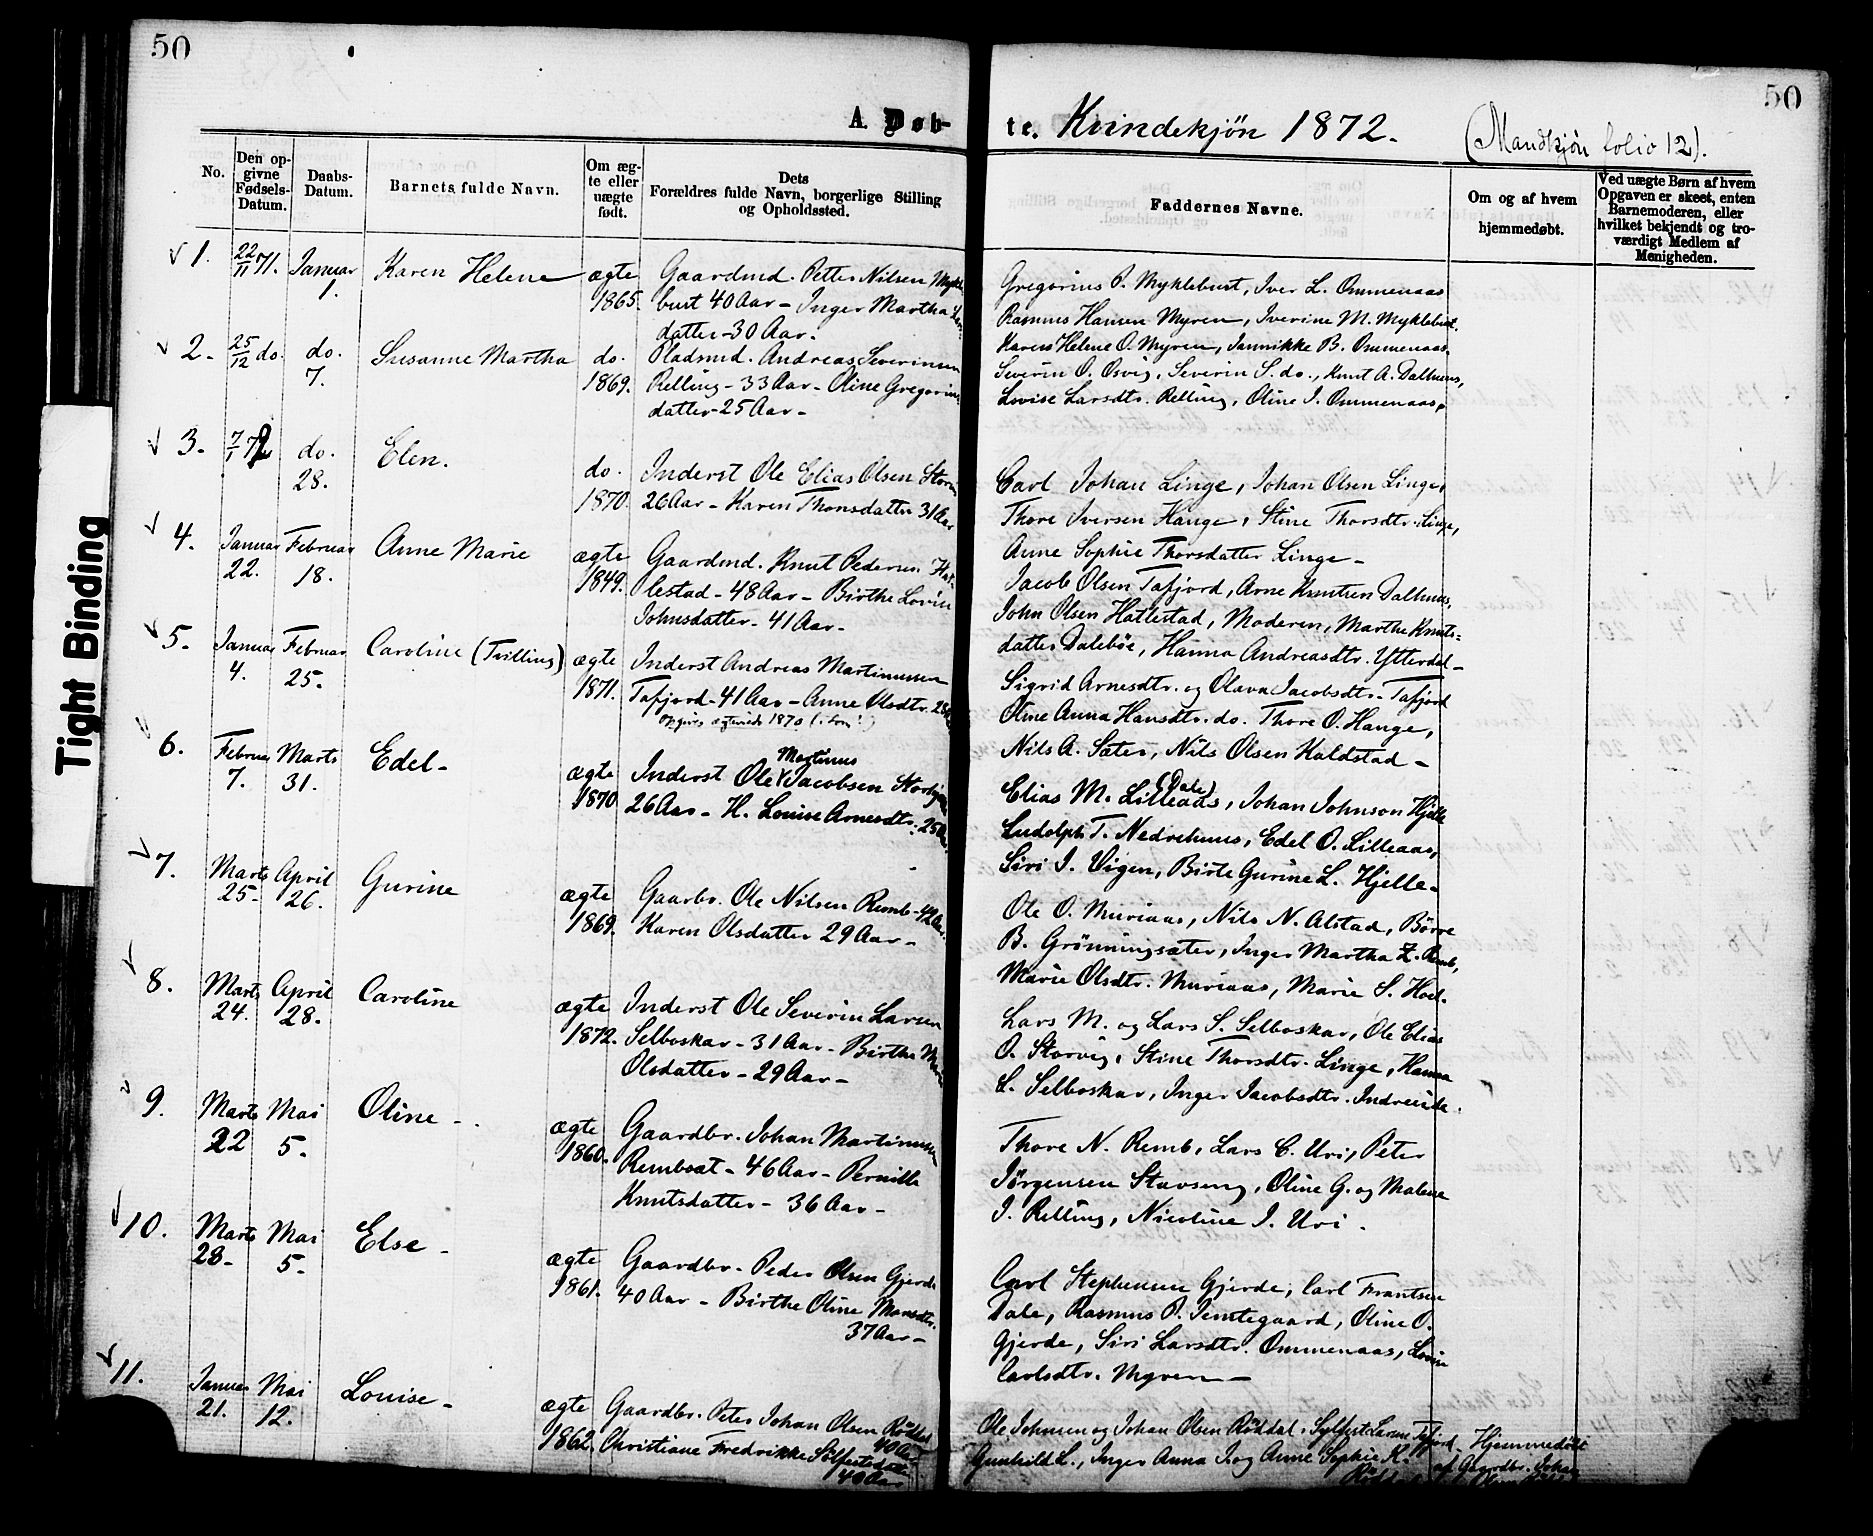 50
50
A. Døb-
te. Kvindekjøn 1872.
(Mandkjøn folio 12).
No.
Den op-
givne
Fødsels-
Datum.
Daabs-
Datum.
Barnets fulde Navn.
Om æg-
te eller
uægte
født.
Dets
Forældres fulde Navn, borgerlige Stilling
og Opholdssted.
Faddernes Navne.
Om og af hvem
hjemmedøbt.
Ved uægte Børn af hvem
Opgaven er skeet, enten
Barnemoderen, eller
hvilket bekjendt og tro-
værdigt Medlem af
Menigheden.
1. 22/11 71. Januar 1. Karen Helene ægte 1865.
Gaardmd. Petter Nilsen Mykle
bust 40 Aar – Inger Martha
datter – 30 Aar.
Gregorius P. Myklebust, Iver L. Ommenaas
Rasmus Hansen Myren, Iverine M. Myklebust.
Karen Helene O. Myren, Jannikke B. Ommenaas.
2. 25/12 do. do. 7. Susanne Martha do. 1869.
Pladsmd. Andreas Severinsen
Relling – 33 Aar – Oline Gregorius
datter – 25 Aar –
Severin O. Osvig, Severin S. do., Knut A. Dalhuus,
Lovise Larsdtr. Relling, Oline I. Ommenaas,
3. 7/1 72 do. 28. Elen. do. 1870.
Inderst Ole Elias Olsen
26 Aar – Karen Thorsdatter 31 Aar
Carl Johan Linge, Johan Olsen Linge,
Thore Iversen Hauge, Stine Thorsdtr. Linge,
Anne Sophie Thorsdatter Linge –
4. Januar 22. Februar 18. Anne Marie ægte 1849.
Gaardmd. Knut Pedersen Hat-
lestad – 48 Aar – Birthe Lovise
Johnsdatter – 41 Aar –
Jacob Olsen Tafjord, Arne Knutsen Dalhuus,
John Olsen Hatlestad, Moderen, Marthe Knuts-
datter Dalebøe, Hanna Andreasdtr. Ytterdal –
5. Januar 4. Februar 25. Caroline (Tvilling) ægte 1871.
Inderst Andreas Martinussen
Tafjord – 41 Aar – Anne Olsdtr.
Sigrid Arnesdtr. og Olava Jacobsdtr. Tafjord
Oline Anna Hansdtr. do. Thore O. Hauge,
Nils A. Sæter, Nils Olsen Kaldstad –
6. Februar 7. Marts 31. Edel – ægte 1870
Martinus
Inderst Ole Jacobsen
26 Aar – H. Louise Arnesdtr. 25 Aar.
(Dale)
Elias M. Lilleaas, Johan Johnson Hjelle
Ludolph T. Nedrehuus, Edel O. Lilleaas,
Siri I. Vigen, Birte Gurine L. Hjelle –
7. Marts 25. April 26. Gurine ægte 1869.
Gaarbr. Ole Nilsen Remb – 42 Aar.
Karen Olsdatter 29 Aar –
Ole O. Muriaas, Nils N. Alstad, Børre
B. Grønningsæter, Inger Martha Z. Remb,
Marie Olsdtr. Muriaas, Marie S. Hoel.
8. Marts 24. April 28. Caroline ægte 1872.
Inderst Ole Severin Larsen
Selboskar – 31 Aar – Birthe
Olsdatter – 29 Aar –
Lars M. og Lars S. Selboskar, Ole Elias
O. Storvig, Stine Thorsdtr. Linge, Hanna
L. Selboskar, Inger Jacobsdtr. Indreeide.
9. Marts 22 Mai 5. Oline – ægte 1860.
Gaardbr. Johan Martinussen
Rembsæt – 46 Aar – Pernille
Knutsdatter – 36 Aar –
Thore N. Remb, Lars C. Uri, Peter
Jørgensen Stavseng, Oline G. og Malene
I. Relling, Nicoline I. Uri.
10. Marts 28. Mai 5. Else – ægte 1861.
Gaardbr. Peder Olsen Gjerde
40 Aar – Birthe Oline Hansdtr.
37 Aar –
Carl Stephensen Gjerde, Carl Frantsen
Dale, Rasmus P. Jemtegaard, Oline O.
Gjerde, Siri Larsdtr. Ommenaas, Lovise
Carlsdtr. Myren –
11. Januar 21. Mai 12. Louise – ægte 1862.
Gaardbr. Peter Johan Olsen Røddal
40 Aar
Christiane Fredrikke Sølfestsdatter
40 Aar
Ole Johnsen og Johan Olsen Røddal, Sylfest Larsen Tafjord
Gunhild L., Inger Anna J. og Anne Sophie K.
Røddal
Hjemmedøbt
af Gaardbr. Johan
Tight Binding